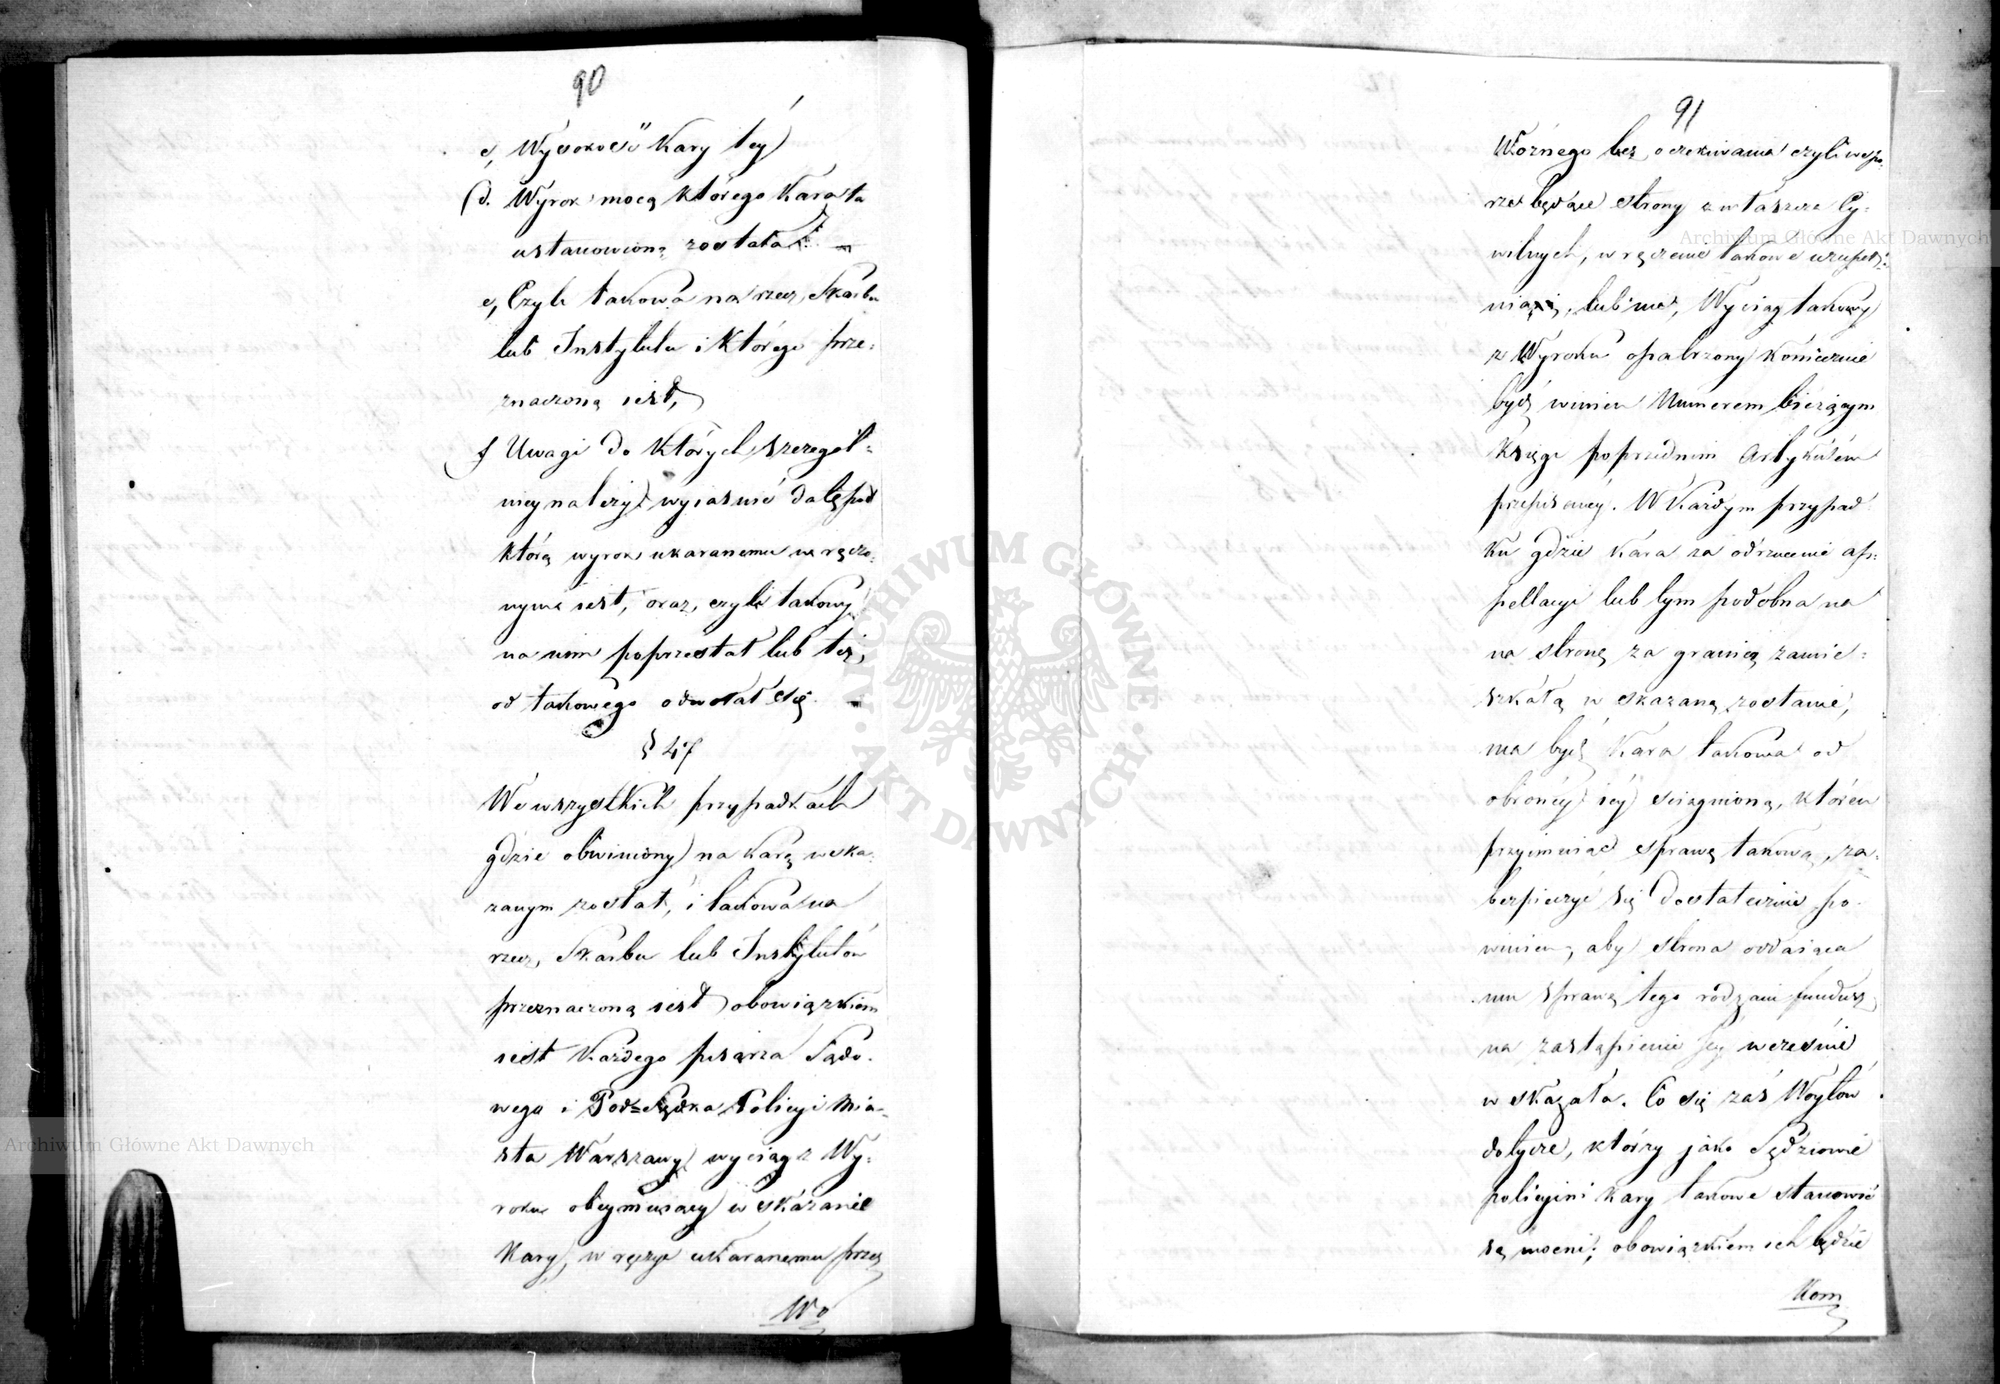 90
c, Wysokość Kary téy
d. Wyrok mocą którego Kara ta
ustanowioną została. —
e, Czyli takowa na rzecz Skarbu
lub Instytutu i którego prze=
znaczoną iest,
f Uwagi do których szczegól=
niey należy wyiaśnić datę pod
którą wyrok ukaranemu wręczo=
nym iest, oraz, czyli takowy
na nim poprzestał lub też,
od takowego odwołał się. —
§ 47
We wszystkich przypadkach
gdzie obwiniony na karę wska=
zanym został, i takowa na
rzecz Skarbu lub Instytutów
przeznaczoną iest obowiązkiem
iest każdego pisarza Sądo=
wego i Podsędka Policyi Mia=
sta Warszawy wyciąg z Wy=
roku obeymuiący wskazanie
Kary, wręczyć ukaranemu przez
Wo
91
Woźnego bez oczekiwania czyli w spo=
rze będące strony zwłaszcza Cy=
wilnych, wręczenie takowe uzupeł=
nią, lub nie, Wyciąg takowy
z Wyroku opatrzony koniecznie
bydź winien Numerem bieżącym
księgi poprzednim Artykułem
przepisaney. W każdym przypad
ku gdzie kara za odrzucenie ap=
pellacyi lub tym podobna na
na stronę za granicą zamie=
szkałą wskazaną zostanie,
ma bydź kara takowa od
obrońcy iéy ściągnioną, któren
przyimuiąc sprawę takową, za=
bezpieczyć się dostatecznie po=
winien, aby strona oddaiąca
mu sprawę tego rodzaiu fundusz
na zastąpienie Jey wcześnie
wskazała. Co się zaś Woytów
dotycze, którzy jako Sędziowie
policyini kary takowe stanowić
są mocni; obowiązkiem ich będzie
Kom
Archiwum Główne Akt Dawnych
Archiwum Główne Akt Dawnych
ARCHIWUM GŁÓWNE AKT DAWNYCH